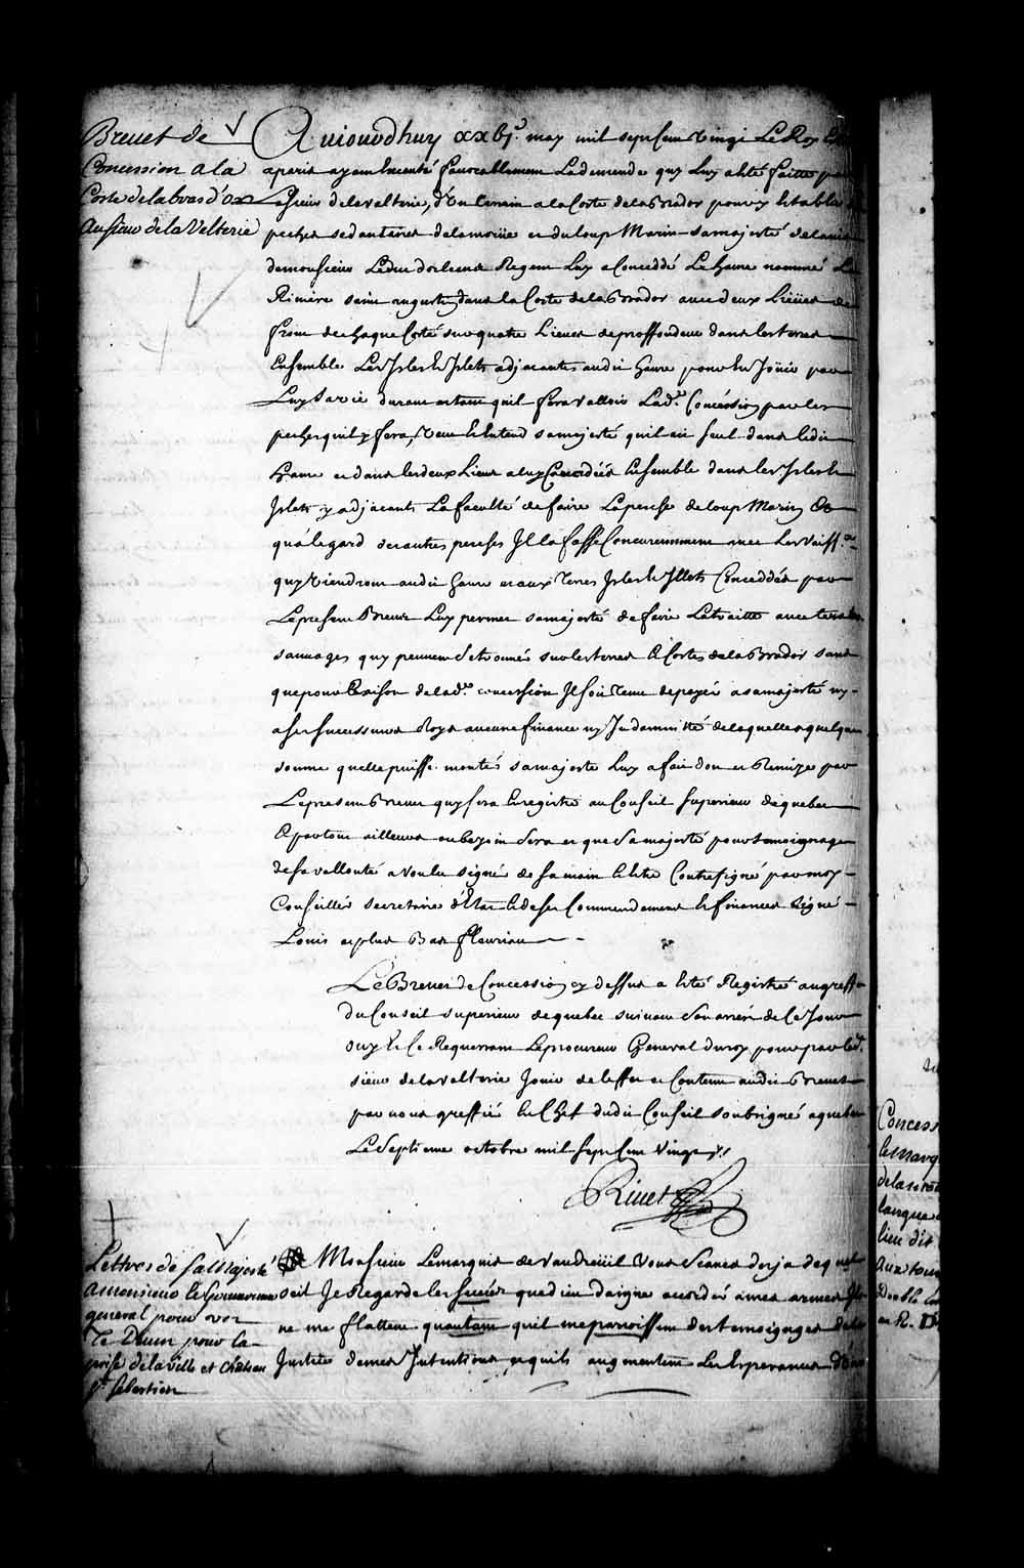 Brevet de
Concession a la
Coste de labrador
Au sieur de la Valterie
Aujourdhuy xxbje may mil sept cent vingt Le Roy Estant
a paris ayant Ecouté favorablement La demande quy Luy a Esté faitte par
Le sieur de la valterie, d'un terrain a la Coste de la Brador pour y Establir des
peches sedantaires de la moriie et du loup Marin sa majesté de lavis
de monsieur Le duc dorleans Regent Luy a Conceddé Le havre nommé La
Riviere saint augustin dans la Coste de la Brador avec deux Liëues de
front de chaque Costé sur quatre Lieues de proffondeur dans les terres
Ensemble Les Isles et Islets adjacantes audit havre pour En Joüir par
Luy sa vie durant autant quil fera valloir Lad.e Concession par les
peches quil y fera, veut et Entend sa majesté quil ait seul dans ledit
havre et dans les deux Lieues a luy Conceddées Ensemble dans les Isles et
Islets y adjacants La faculté de faire La pesche de loup Marin Et
qua legard des autres pesches Il la fasse Concurremment avec Les vaiss.aux
quy viendront audit havre et aux Terres Isles et Illets Conceddés par
Le present Brevet Luy permet sa majesté de faire La traitte avec les
sauvages quy peuvent se trouver sur les terres Et Costes de la Brador sans
que pour Raison de lad.e concession Il soit tenu de payer a sa majesté ny
a ses successeurs Roys aucune finance ny Indamnitté de laquelle a quelque
somme quelle puisse monter sa majesté Luy a fait don et Remize par
Le present Brevet quy sera Enregistré au Conseil superieur de quebec
Et partout ailleurs ou besoin sera et que sa majesté pour temoignage
de sa vollonté a voulu signer de sa main et Estre Contresigné par moy
Conseiller secretaire d'Etat et de ses Commandements et finances signé
Louis et plus Bas fleuriau
Le Brevet de Concession cy dessus a Esté Registré au greffe
du Conseil superieur de quebec suivant son arrest de Ce Jour
ouy Et Ce Requerant Le procureur General du roy pour par led.t
sieur de la valterie Jouir de leffet et Contenu audit Brevet
par nous greffier En Chef dudit Conseil soubsigné a quebec
Le septieme octobre mil sept cent vingt
Rivet
Lettres de sa Majesté
a monsieur le Gouverneur
general pour
Te Deum pour la
prise de la ville et chateau
St sebastien
Monsieur Le marquis de vaudreüil Vous scaurez desja de quel
oeil Je Regarde les succès que dieu daigne accorder a mes armes Ils
ne me flattent quautant quil me paroissent des temoignages de la
Justice de mes Intentions et quils augmentent Les Esperances
Concess
le marq